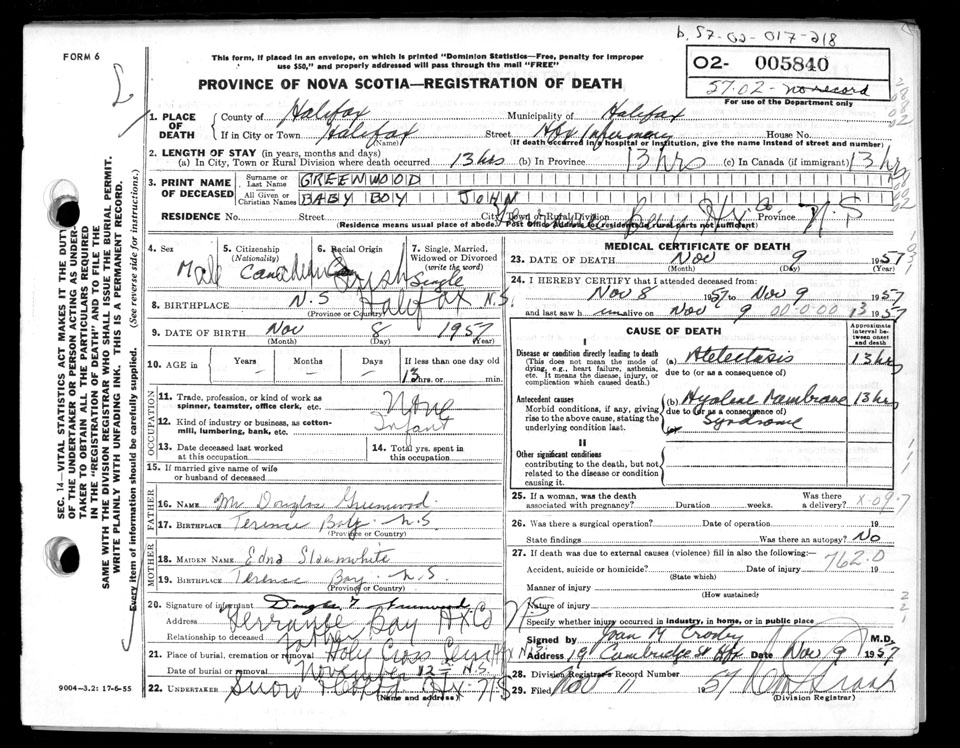 b. 57-02-017-218
FORM 6
This form, if placed in an envelope, on which is printed "Dominion Statistics—Free, penalty for improper
use $50," and properly addressed will pass through the mail "FREE"
O2- 005840
57-02- no record
For use of the Department only
PROVINCE OF NOVA SCOTIA—REGISTRATION OF DEATH
1. PLACE OF DEATH County of Halifax Municipality of Halifax
If in City or Town Halifax Street Hfx Infirmary House No.
(Name) (If death occurred in a hospital or institution, give the name instead of street and number)
2. LENGTH OF STAY (in years, months and days)
(a) In City, Town or Rural Division where death occurred 13 hrs (b) In Province 13 hrs (c) In Canada (if immigrant) 13 hrs
3. PRINT NAME OF DECEASED Surname or Last Name GREENWOOD
All Given or Christian Names BABY BOY JOHN
RESIDENCE No. Street City, Town or Rural Division Bay Hx Co Province N.S
(Residence means usual place of abode. Post Office Address for residents in rural parts not sufficient)
4. Sex Male
5. Citizenship (Nationality) Canadian
6. Racial Origin
7. Single, Married, Widowed or Divorced (write the word) Single
8. BIRTHPLACE N.S Halifax N.S.
(Province or Country)
9. DATE OF BIRTH Nov 8 1957
(Month) (Day) (Year)
10. AGE in Years Months Days If less than one day old
— — — 13 hrs. or min.
OCCUPATION
11. Trade, profession, or kind of work as
spinner, teamster, office clerk, etc. None
12. Kind of industry or business, as cotton-
mill, lumbering, bank, etc. Infant
13. Date deceased last worked
at this occupation
14. Total yrs. spent in
this occupation
15. If married give name of wife
or husband of deceased
FATHER
16. NAME Mr Douglas Greenwood
17. BIRTHPLACE Terence Bay. N.S.
(Province or Country)
MOTHER
18. MAIDEN NAME Edna Slaunwhite
19. BIRTHPLACE Terence Bay. N.S.
(Province or Country)
20. Signature of informant Douglas F Greenwood
Address Terrance Bay Hx Co N.S
Relationship to deceased father
21. Place of burial, cremation or removal Holy Cross Hx N.S.
Date of burial or removal November 12 N.S.
22. UNDERTAKER Snow Hx N.S
(Name and Address)
9004—3.2: 17-6-55
MEDICAL CERTIFICATE OF DEATH
23. DATE OF DEATH Nov 9 1957
(Month) (Day) (Year)
24. I HEREBY CERTIFY that I attended deceased from
Nov 8 1957 to Nov 9 1957
and last saw h im alive on Nov 9 00:0:00 13 1957
CAUSE OF DEATH
Approximate interval between onset and death
I
Disease or condition directly leading to death
(This does not mean the mode of
dying, e.g., heart failure, asthenia,
etc. It means the disease, injury, or
complication which caused death.)
(a) Atelectasis 13 hrs
due to (or as a consequence of)
Antecedent causes
Morbid conditions, if any, giving
rise to the above cause, stating the
underlying condition last.
(b) Hyaline Membrane 13 hrs
due to (or as a consequence of)
Syndrome
II
Other significant conditions
contributing to the death, but not
related to the disease or condition
causing it.
25. If a woman, was the death
associated with pregnancy? Duration weeks. Was there
a delivery? X-09-7
26. Was there a surgical operation? Date of operation 19
State findings Was there an autopsy? No
27. If death was due to external causes (violence) fill in also the following:—
762.0
Accident, suicide or homicide? Date of injury 19
(State which)
Manner of injury
(How sustained)
Nature of injury
Specify whether injury occurred in industry, in home, or in public place
Signed by Joan M Crosby M.D.
Address 19 Cambridge St Hfx Date Nov 9 1957
28. Division Registrar's Record Number
29. Filed Nov 11 1957
(Division Registrar)
SEC. 14—VITAL STATISTICS ACT MAKES IT THE DUTY
OF THE UNDERTAKER OR PERSON ACTING AS UNDER-
TAKER TO OBTAIN ALL THE PARTICULARS REQUIRED
IN THE "REGISTRATION OF DEATH" AND TO FILE THE
SAME WITH THE DIVISION REGISTRAR WHO SHALL ISSUE THE BURIAL PERMIT.
WRITE PLAINLY WITH UNFADING INK. THIS IS A PERMANENT RECORD.
Every item of information should be carefully supplied. (See reverse side for instructions.)